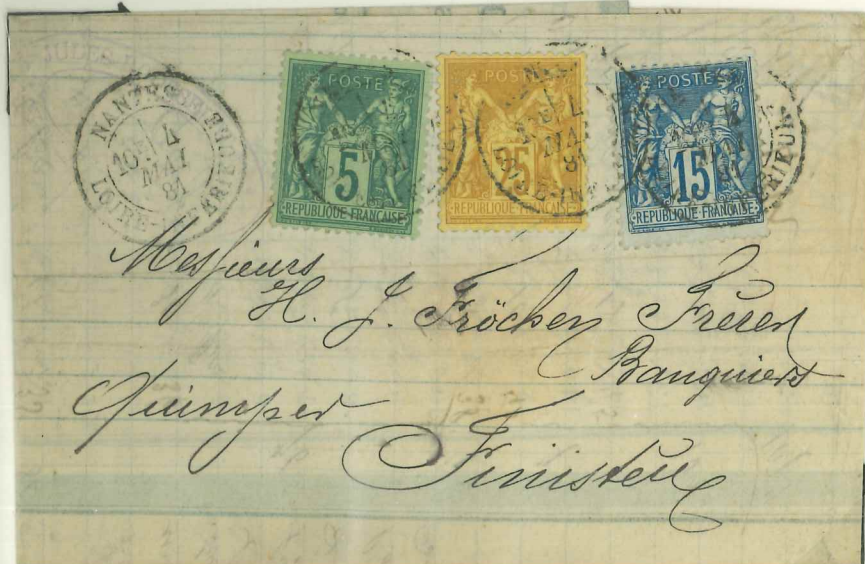 JULES
NANTES
LOIRE-
10E 4
MAI
81
POSTE
5
REPUBLIQUE FRANÇAISE
POSTE
25
REPUBLIQUE FRANÇAISE
POSTE
15
REPUBLIQUE FRANÇAISE
Messieurs
H. J. Fröchen Frères
Banquiers
Quimper
Finistère